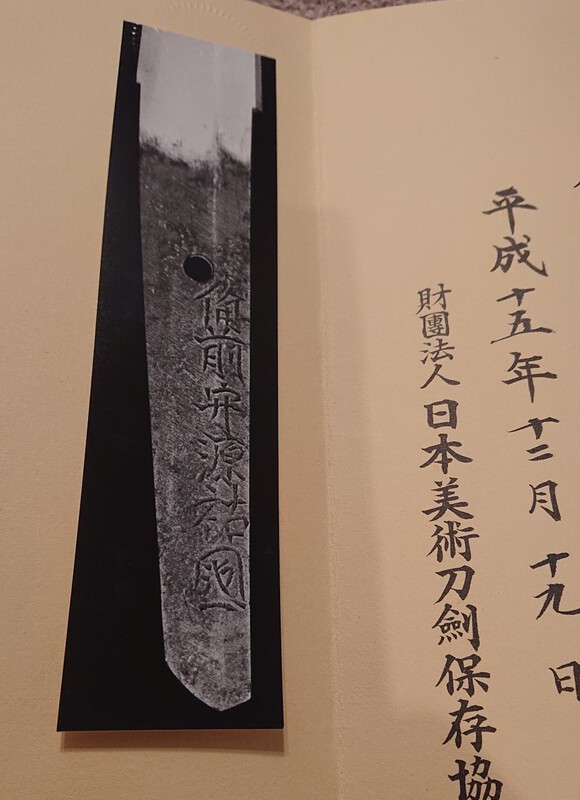 平成十五年十二月十九日
財團法人日本美術刀劍保存協
備前守源祐國